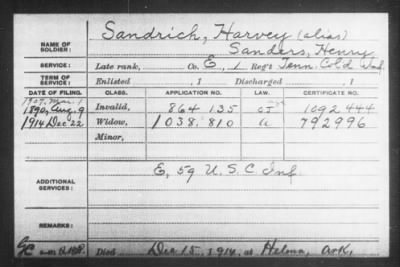 NAME OF SOLDIER: Sandrich, Harvey (alias)
Sanders, Henry
SERVICE: Late rank, Co. E, 1 Reg't Tenn. Cold Inf.
TERM OF SERVICE: Enlisted , 1 Discharged , 1
DATE OF FILING. CLASS. APPLICATION NO. LAW. CERTIFICATE NO.
1907, Mar. 1
1890, Aug. 9 Invalid, 864 135 1092 444
1914 Dec 22 Widow, 1038 810 a 792996
Minor,
ADDITIONAL SERVICES: E, 59 U. S. C. Inf.
REMARKS:
Died Dec 15, 1914, at Helena, Ark.